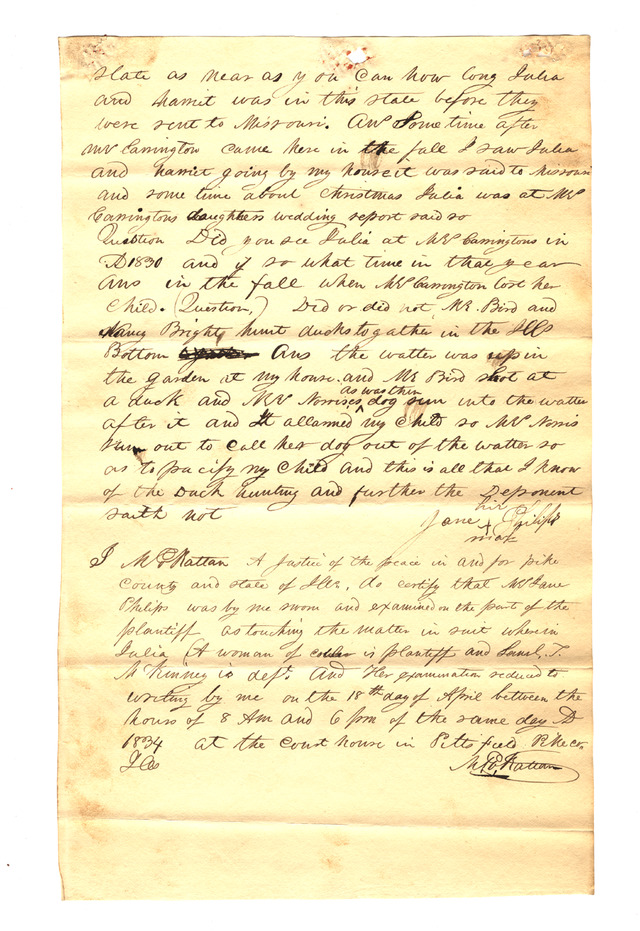 State as near as you can how long Julia
and Harriet was in this state before they
were sent to Missouri. Ans Some time after
Mrs Carrington came here in the fall I saw Julia
and Harriet going by my house it was said to Missouri
and some time about Christmas Julia was at Mrs
Carringtons daughters wedding report said so
Question Did you see Julia at Mrs Carringtons in
AD 1830 and if so what time in that year
Ans in the fall when Mrs Carrington lost her
Child. (Question,) Did or did not Mr. Bird and
Nancy Bright hunt ducks together in the Ills
Bottom Ans the watter was up in
the garden at my house and Mr Bird shot at
a duck and Mrs Norrises as was then dog run into the watter
after it and It allarmed my Child so Mrs Norris
run out to call her dog out of the watter so
as to pacify my Child and this is all that I know
of the Duck hunting and further the Deponent
saith not
Jane her X Philips
mark
I M. E. Rattan A Justice of the peace in and for pike
County and state of Ills, do certify that Mrs Jane
Philips was by me sworn and examined on the part of the
plantiff as touching the matter in suit wherein
Julia (A woman of couler is plantiff and Saml. T.
McKinney is deft. And Her examination reduced to
writing by me on the 18th day of April between the
hours of 8 Am and 6 pm of the same day AD
1834 at the court house in Pittsfield Pike co,
Ills M. E. Rattan